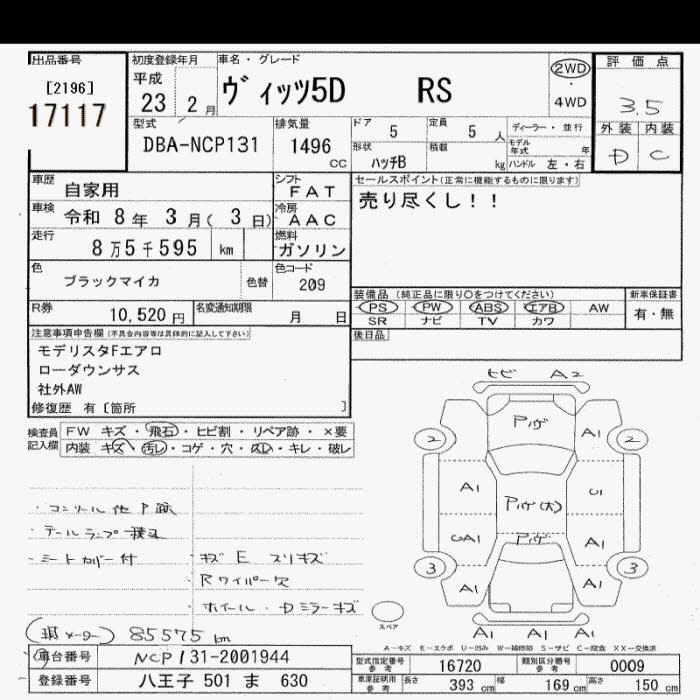 出品番号
[2196]
17117
初度登録年月
平成
23 2 月
車名・グレード
ヴィッツ5D RS
2WD
・
4WD
評価点
3.5
外装 内装
D C
型式
DBA-NCP131
排気量
1496 CC
ドア 5
定員 5 人
形状 ハッチB
積載 kg
ディーラー・並行
モデル年式 年
ハンドル 左・右
車歴 自家用
シフト FAT
車検 令和 8 年 3 月( 3 日)
冷房 AAC
走行 8万5千595 km
燃料 ガソリン
色 ブラックマイカ
色替
色コード 209
R券 10,520 円
名変通知期限 月 日
セールスポイント(正常に機能するものに限ります)
売り尽くし!!
装備品 (純正品に限り○をつけてください)
PS PW ABS エアB AW
SR ナビ TV カワ
新車保証書
有・無
後日品
注意事項申告欄(不具合内容等は具体的に記入して下さい)
モデリスタFエアロ
ローダウンサス
社外AW
修復歴 有 [箇所 ]
検査員記入欄
FW キズ・飛石・ヒビ割・リペア跡・×要
内装 キズ・汚レ・コゲ・穴・スレ・キレ・破レ
・コンソール他P跡
・テールランプ積込
・シートカバー付
・キズ E スリキズ
・Rワイパー欠
・ホイール・Dミラーキズ
85575 km
ヒビ A2
Pハゲ
2 A1 2
A1 Pハゲ(大) U1
UA1 Pハゲ A1
3 A1 A1 3
A1 A1 A1
スペア
A−キズ E−エクボ U−凹み W−補修跡 S−サビ C−腐食 XX−交換済
車台番号 NCP131-2001944
登録番号 八王子 501 ま 630
型式指定番号 参考 16720
類別区分番号 参考 0009
車庫証明用 参考 長さ 393 cm 幅 169 cm 高さ 150 cm